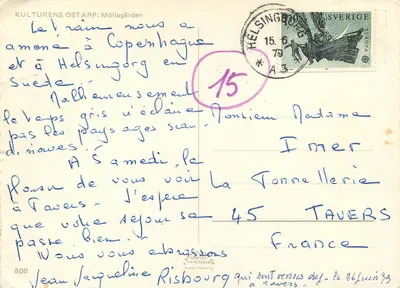 KULTURENS ÖSTARP: Möllegården
Le train nous a
amené à Copenhague
et à Helsingorg en
Suède.
Malheureusement
le temps gris n'éclaire
pas les paysages scan-
dinaves.
A Samedi, le
plaisir de vous voir
à Tavers. J'espère
que votre séjour se
passe bien.
Nous vous embrassons
Jean Jacqueline Risbourg
800
15
HELSINGBORG
15. 6
79
* A.3
SVERIGE
EUROPA
Monsieur Madame
Imer
La Tonnellerie
45 TAVERS
France
qui sont venus le 26 juin 79
à Tavers.